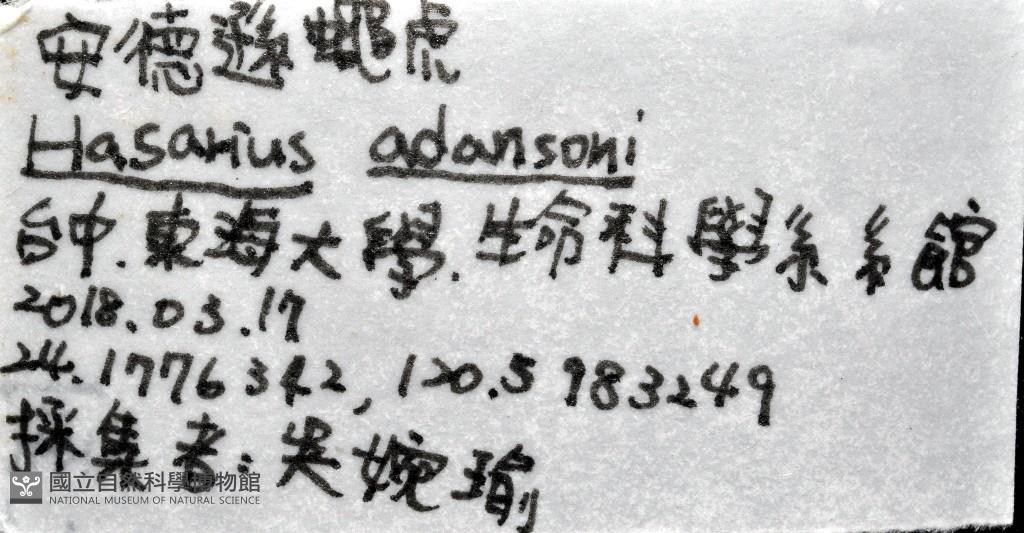 安德遜蠅虎
Hasarius adansoni
台中.東海大學.生命科學系系館
2018.03.17
24.1776342, 120.5983249
採集者:吳婉瑜
國立自然科學博物館
NATIONAL MUSEUM OF NATURAL SCIENCE